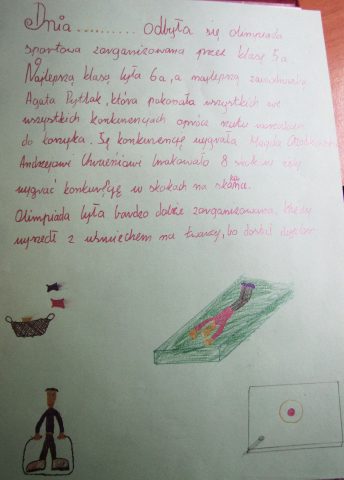 Dnia .......... odbyła się olimpiada
sportowa zorganizowana przez klasę 5a.
Najlepszą klasą była 6a, a najlepszą zawodniczką
Agata Pytlak, która pokonała wszystkich we
wszystkich konkurencjach oprócz rzutu
do koszyka. Tę konkurencję wygrała Magda
Andrzejowi brakowało 8 żeby
wygrać konkurencję w skokach na
Olimpiada była bardzo dobrze zorganizowana. Każdy
wyszedł z uśmiechem na twarzy, bo dostał